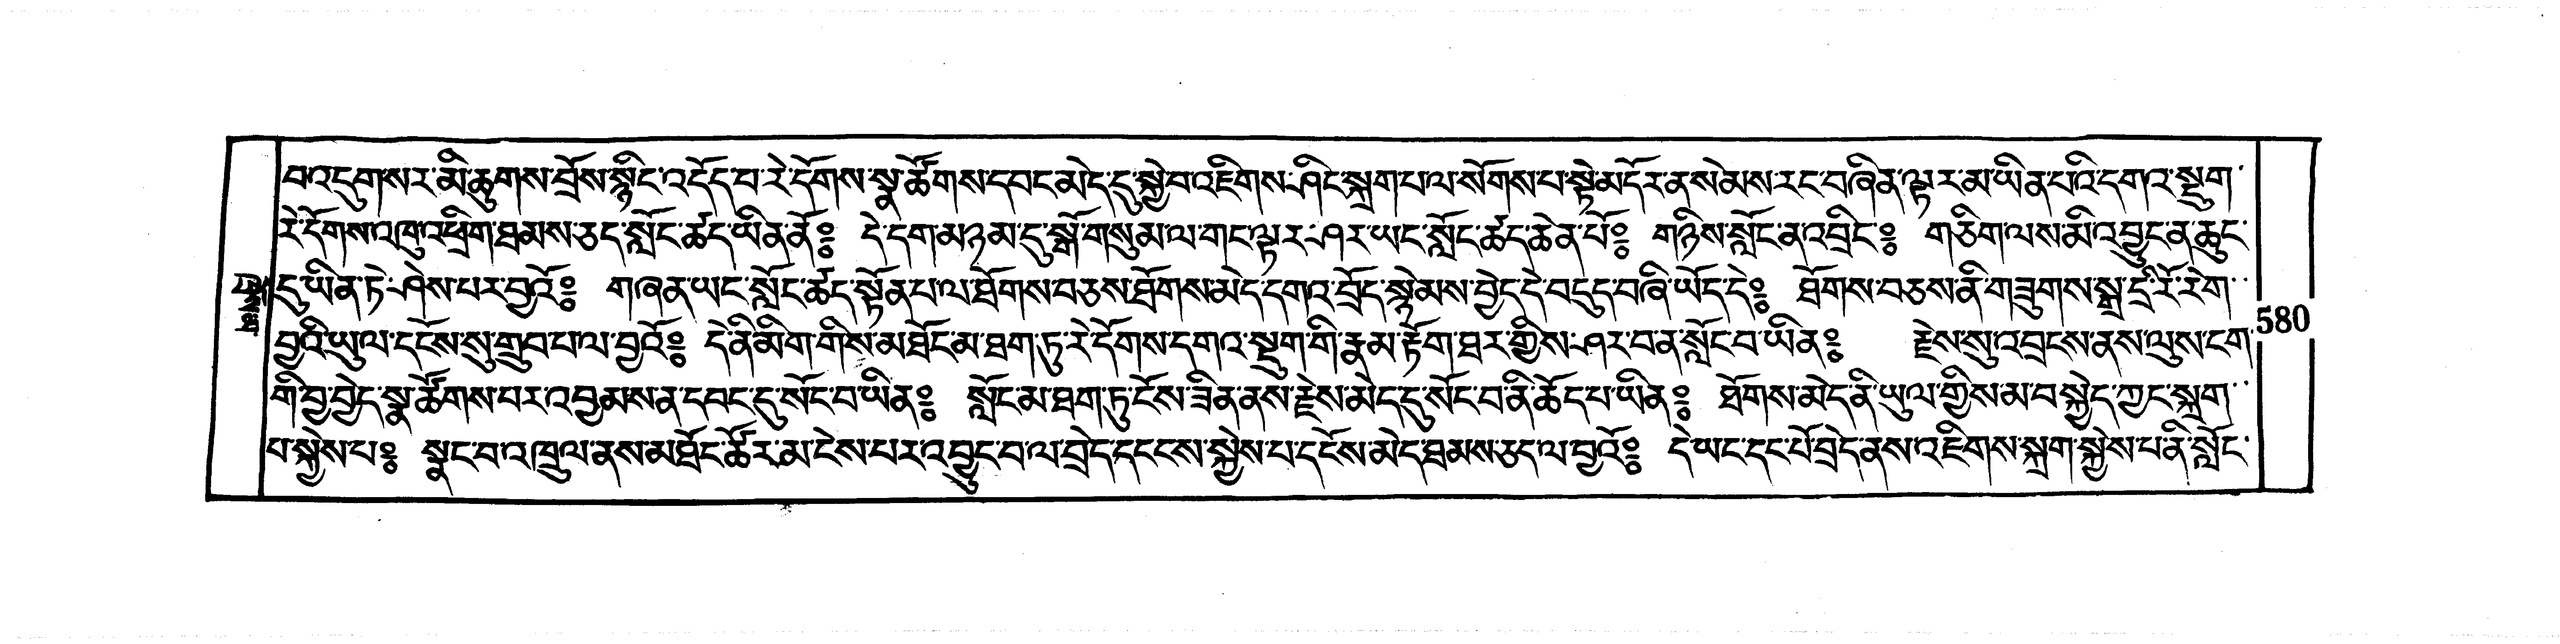 བ་འདུག་ས་ར་མི་ཆུགས་བྲོས་སྙིང་འདོད་བ་རེ་དོགས་སྣ་ཚོགས་དབང་མེད་དུ་སྐྱེ་བ་འཇིགས་ཤིང་སྐྲག་པ་ལ་སོགས་པ་སྟེ་མདོར་ན་སེམས་རང་བཞིན་ལྟར་མ་ཡིན་པའི་དགའ་སྡུག་
རེ་དོགས་འཁུ་འཕྲིག་ཐམས་ཅད་སློང་ཚད་ཡིན་ནོ༔ དེ་དག་མཉམ་དུ་སྒོ་གསུམ་ལ་གང་ལྟར་ཤར་ཡང་སློང་ཚད་ཆེན་པོ༔ གཉིས་སློང་ན་འབྲིང༔ གཅིག་ལས་མི་འབྱུང་ན་ཆུང་
དུ་ཡིན་ཏེ་ཤེས་པར་བྱའོ༔ གཞན་ཡང་སློང་ཚད་སྟོན་པ་ལ་ཐོགས་བཅས་ཐོགས་མེད་དགའ་བྲོད་སྙེམས་བྱེད་དེ་བདུད་བཞི་ཡོད་དེ༔ ཐོགས་བཅས་ནི་གཟུགས་སྒྲ་དྲི་རོ་རེག་
བྱའི་ཡུལ་དངོས་སུ་གྲུབ་པ་ལ་བྱའོ༔ དེ་ནི་མིག་གིས་མཐོང་མ་ཐག་ཏུ་རེ་དོགས་དགའ་སྡུག་གི་རྣམ་རྟོག་ཐར་གྱིས་ཤར་བ་ན་སློང་བ་ཡིན༔ རྗེས་སུ་འབྲངས་ནས་ལུས་ངག་
གི་བྱ་བྱེད་སྣ་ཚོགས་པར་འབྱམས་ན་དབང་དུ་སོང་བ་ཡིན༔ སློང་མ་ཐག་ཏུ་ངོས་ཟིན་ནས་རྗེས་མེད་དུ་སོང་བ་ནི་ཆོད་པ་ཡིན༔ ཐོགས་མེད་ནི་ཡུལ་གྱིས་མ་བསྐྱེད་ཀྱང་སྐྲག་
པ་སྐྱེས་པ༔ སྣང་བ་འཁྲུལ་ནས་མཐོང་ཚོར་མ་ངེས་པར་འབྱུང་བ་ལ་བྲེད་དངངས་སྐྱེས་པ་དངོས་མེད་ཐམས་ཅད་ལ་བྱའོ༔ དེ་ཡང་དང་པོ་བྲེད་ནས་འཇིགས་སྐྲག་སྐྱེས་པ་ནི་སློང་
580